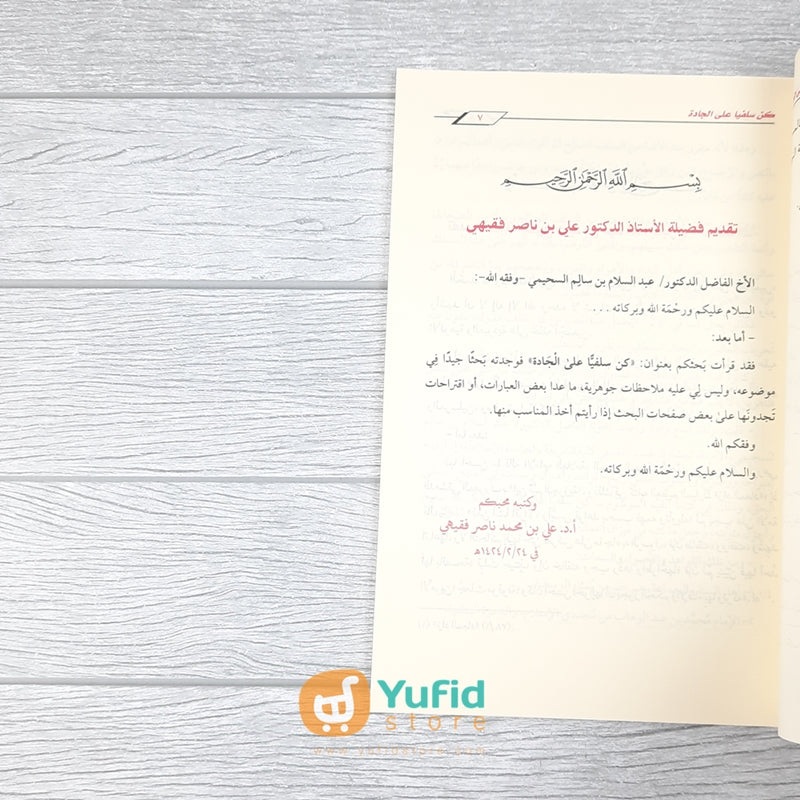 كن سلفيا على الجادة
٧
بِسْمِ اللَّهِ الرَّحْمَٰنِ الرَّحِيمِ
تقديم فضيلة الأستاذ الدكتور علي بن ناصر فقيهي
الأخ الفاضل الدكتور/ عبد السلام بن سالِم السحيمي -وفقه الله-:
السلام عليكم ورحْمَة الله وبركاته . . .
- أما بعد:
فقد قرأت بَحثكم بعنوان: «كن سلفيًّا علىٰ الْجَادة» فوجدته بَحثًا جيدًا فِي
موضوعه، وليس لِي عليه ملاحظات جوهرية، ما عدا بعض العبارات، أو اقتراحات
تَجدونَها علىٰ بعض صفحات البحث إذا رأيتم أخذ المناسب منها.
وفقكم الله.
والسلام عليكم ورحْمَة الله وبركاته.
وكتبه محبكم
أ.د. علي بن محمد ناصر فقيهي
في ١٤٢٤/٢/٢٤هـ
Yufid
store